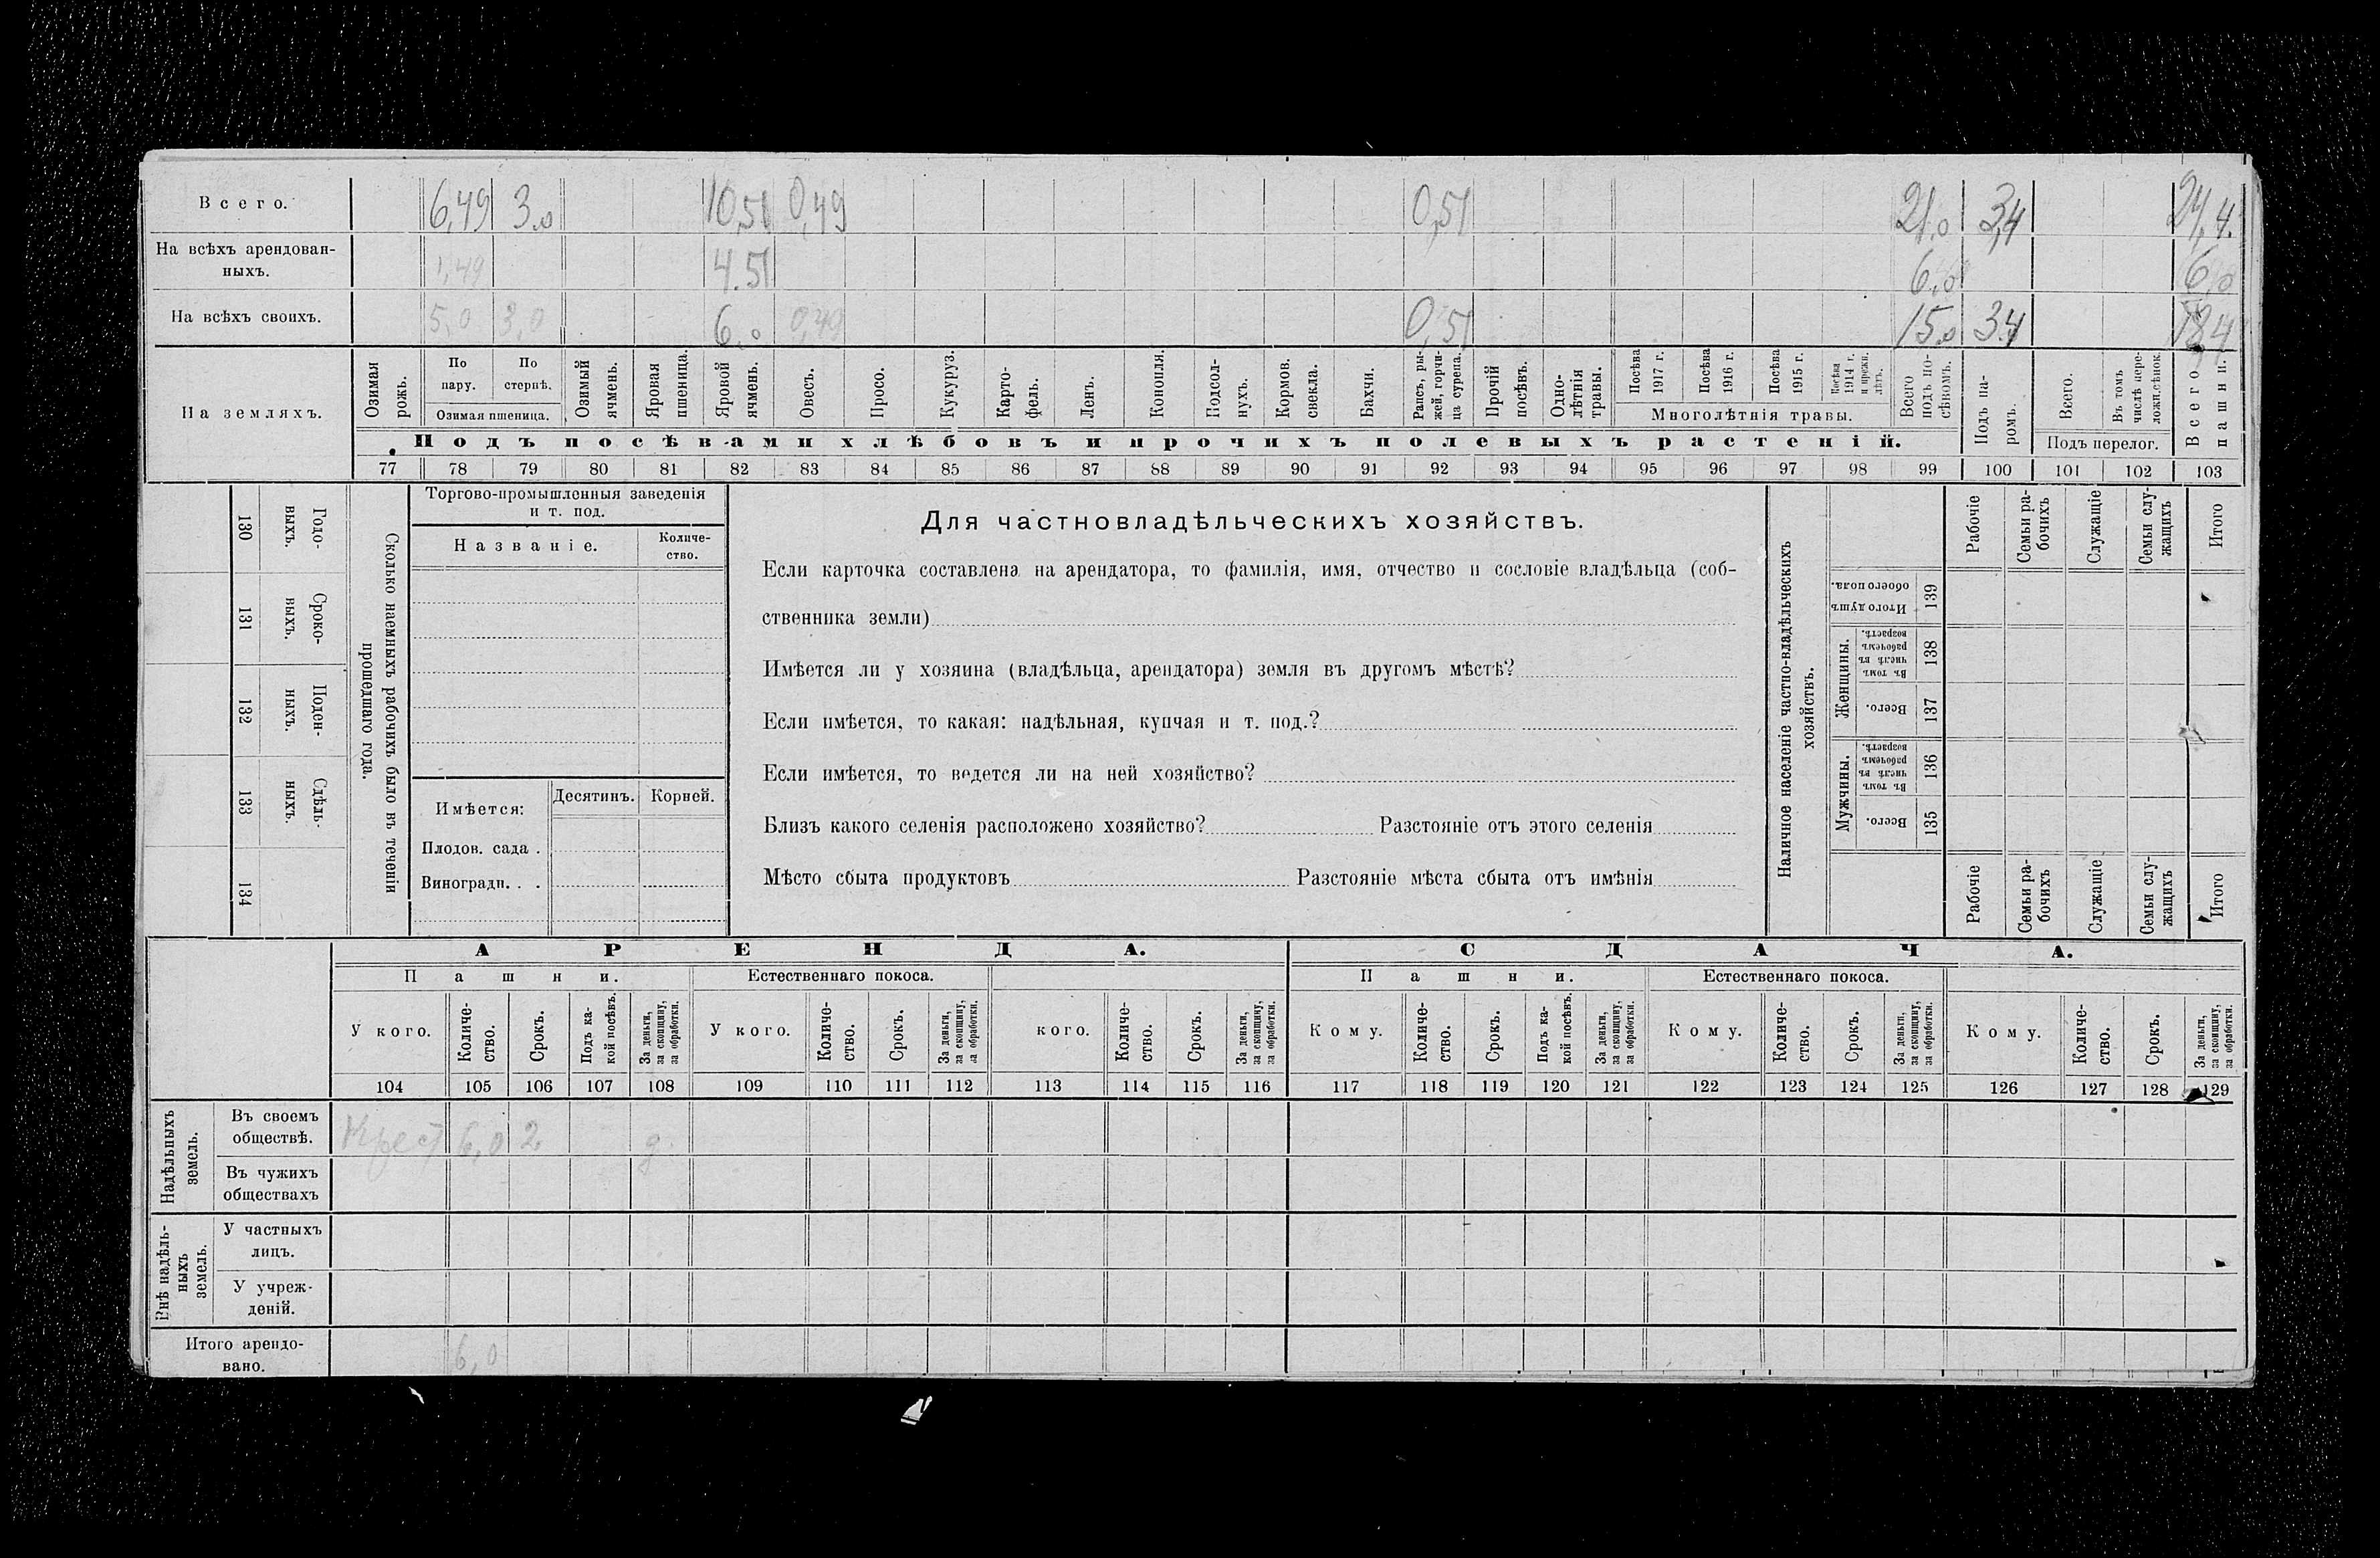 Всего. 6,49 3.0 10,51 0,49 0,51 21.0 3,4 24,4.
На всѣхъ арендован-
ныхъ. 1,49 4.51 6,0 6,0
На всѣхъ своихъ. 5,0 3,0 6,0 0,49 0,51 15.0 3.4 18,4
На земляхъ.
Озимая рожь.
По пару.
По стернѣ.
Озимая пшеница.
Озимый ячмень.
Яровая пшеница.
Яровой ячмень.
Овесъ.
Просо.
Кукуруз.
Карто-
фель.
Ленъ.
Конопля.
Подсол-
нухъ.
Кормов. свекла.
Бахчи.
Рапсъ, ры-
жей, горчи-
ца сурепа.
Прочій посѣвъ.
Одно-
лѣтнія травы.
Посѣва 1917 г.
Посѣва 1916 г.
Посѣва 1915 г.
Посѣва 1914 г. и прежн. лѣтъ.
Многолѣтнія травы.
Всего подъ по-
сѣвомъ.
Подъ посѣвами хлѣбовъ и прочихъ полевыхъ растеній.
Подъ па-
ромъ.
Всего.
Въ томъ числѣ пере-
ложн.сѣнок.
Подъ перелог.
Всего пашни.
77 78 79 80 81 82 83 84 85 86 87 88 89 90 91 92 93 94 95 96 97 98 99 100 101 102 103
130
Годо-
выхъ.
131
Сроко-
выхъ.
132
Поден-
ныхъ.
133
Сдѣль-
ныхъ.
134
Сколько наемныхъ рабочихъ было въ теченіи
прошедшаго года.
Торгово-промышленныя заведенія
и т. под.
Названіе.
Количе-
ство.
Имѣется:
Десятинъ.
Корней.
Плодов. сада .
Виноградн. . .
Для частновладѣльческихъ хозяйствъ.
Если карточка составлена на арендатора, то фамилія, имя, отчество и сословіе владѣльца (соб-
ственника земли)
Имѣется ли у хозяина (владѣльца, арендатора) земля въ другомъ мѣстѣ?
Если имѣется, то какая: надѣльная, купчая и т. под.?
Если имѣется, то ведется ли на ней хозяйство?
Близъ какого селенія расположено хозяйство? Разстояніе отъ этого селенія
Мѣсто сбыта продуктовъ Разстояніе мѣста сбыта отъ имѣнія
Наличное населеніе частно-владѣльческихъ
хозяйствъ.
Рабочіе
Семьи ра-
бочихъ
Служащіе
Семьи слу-
жащихъ
Итого
Итого душъ обоего пола.
139
Женщины.
Въ томъ числѣ въ рабочемъ возрастѣ.
138
Всего.
137
Мужчины.
Въ томъ числѣ въ рабочемъ возрастѣ.
136
Всего.
135
Рабочіе
Семьи ра-
бочихъ
Служащіе
Семьи слу-
жащихъ
Итого
АРЕНДА.
СДАЧА.
Пашни.
Естественнаго покоса.
Пашни.
Естественнаго покоса.
У кого.
Количе-
ство.
Срокъ.
Подъ ка-
кой посѣвъ.
За деньги, за скопщину, за обработки.
У кого.
Количе-
ство.
Срокъ.
За деньги, за скопщину, за обработки.
кого.
Количе-
ство.
Срокъ.
За деньги, за скопщину, за обработки.
Кому.
Количе-
ство.
Срокъ.
Подъ ка-
кой посѣвъ.
За деньги, за скопщину, за обработки.
Кому.
Количе-
ство.
Срокъ.
За деньги, за скопщину, за обработки.
Кому.
Количе-
ство.
Срокъ.
За деньги, за скопщину, за обработки.
104 105 106 107 108 109 110 111 112 113 114 115 116 117 118 119 120 121 122 123 124 125 126 127 128 129
Надѣльныхъ
земель.
Въ своемъ
обществѣ. Крест 6,0 2 д.
Въ чужихъ
обществахъ
Внѣ надѣль-
ныхъ
земель.
У частныхъ
лицъ.
У учреж-
деній.
Итого арендо-
вано. 6,0